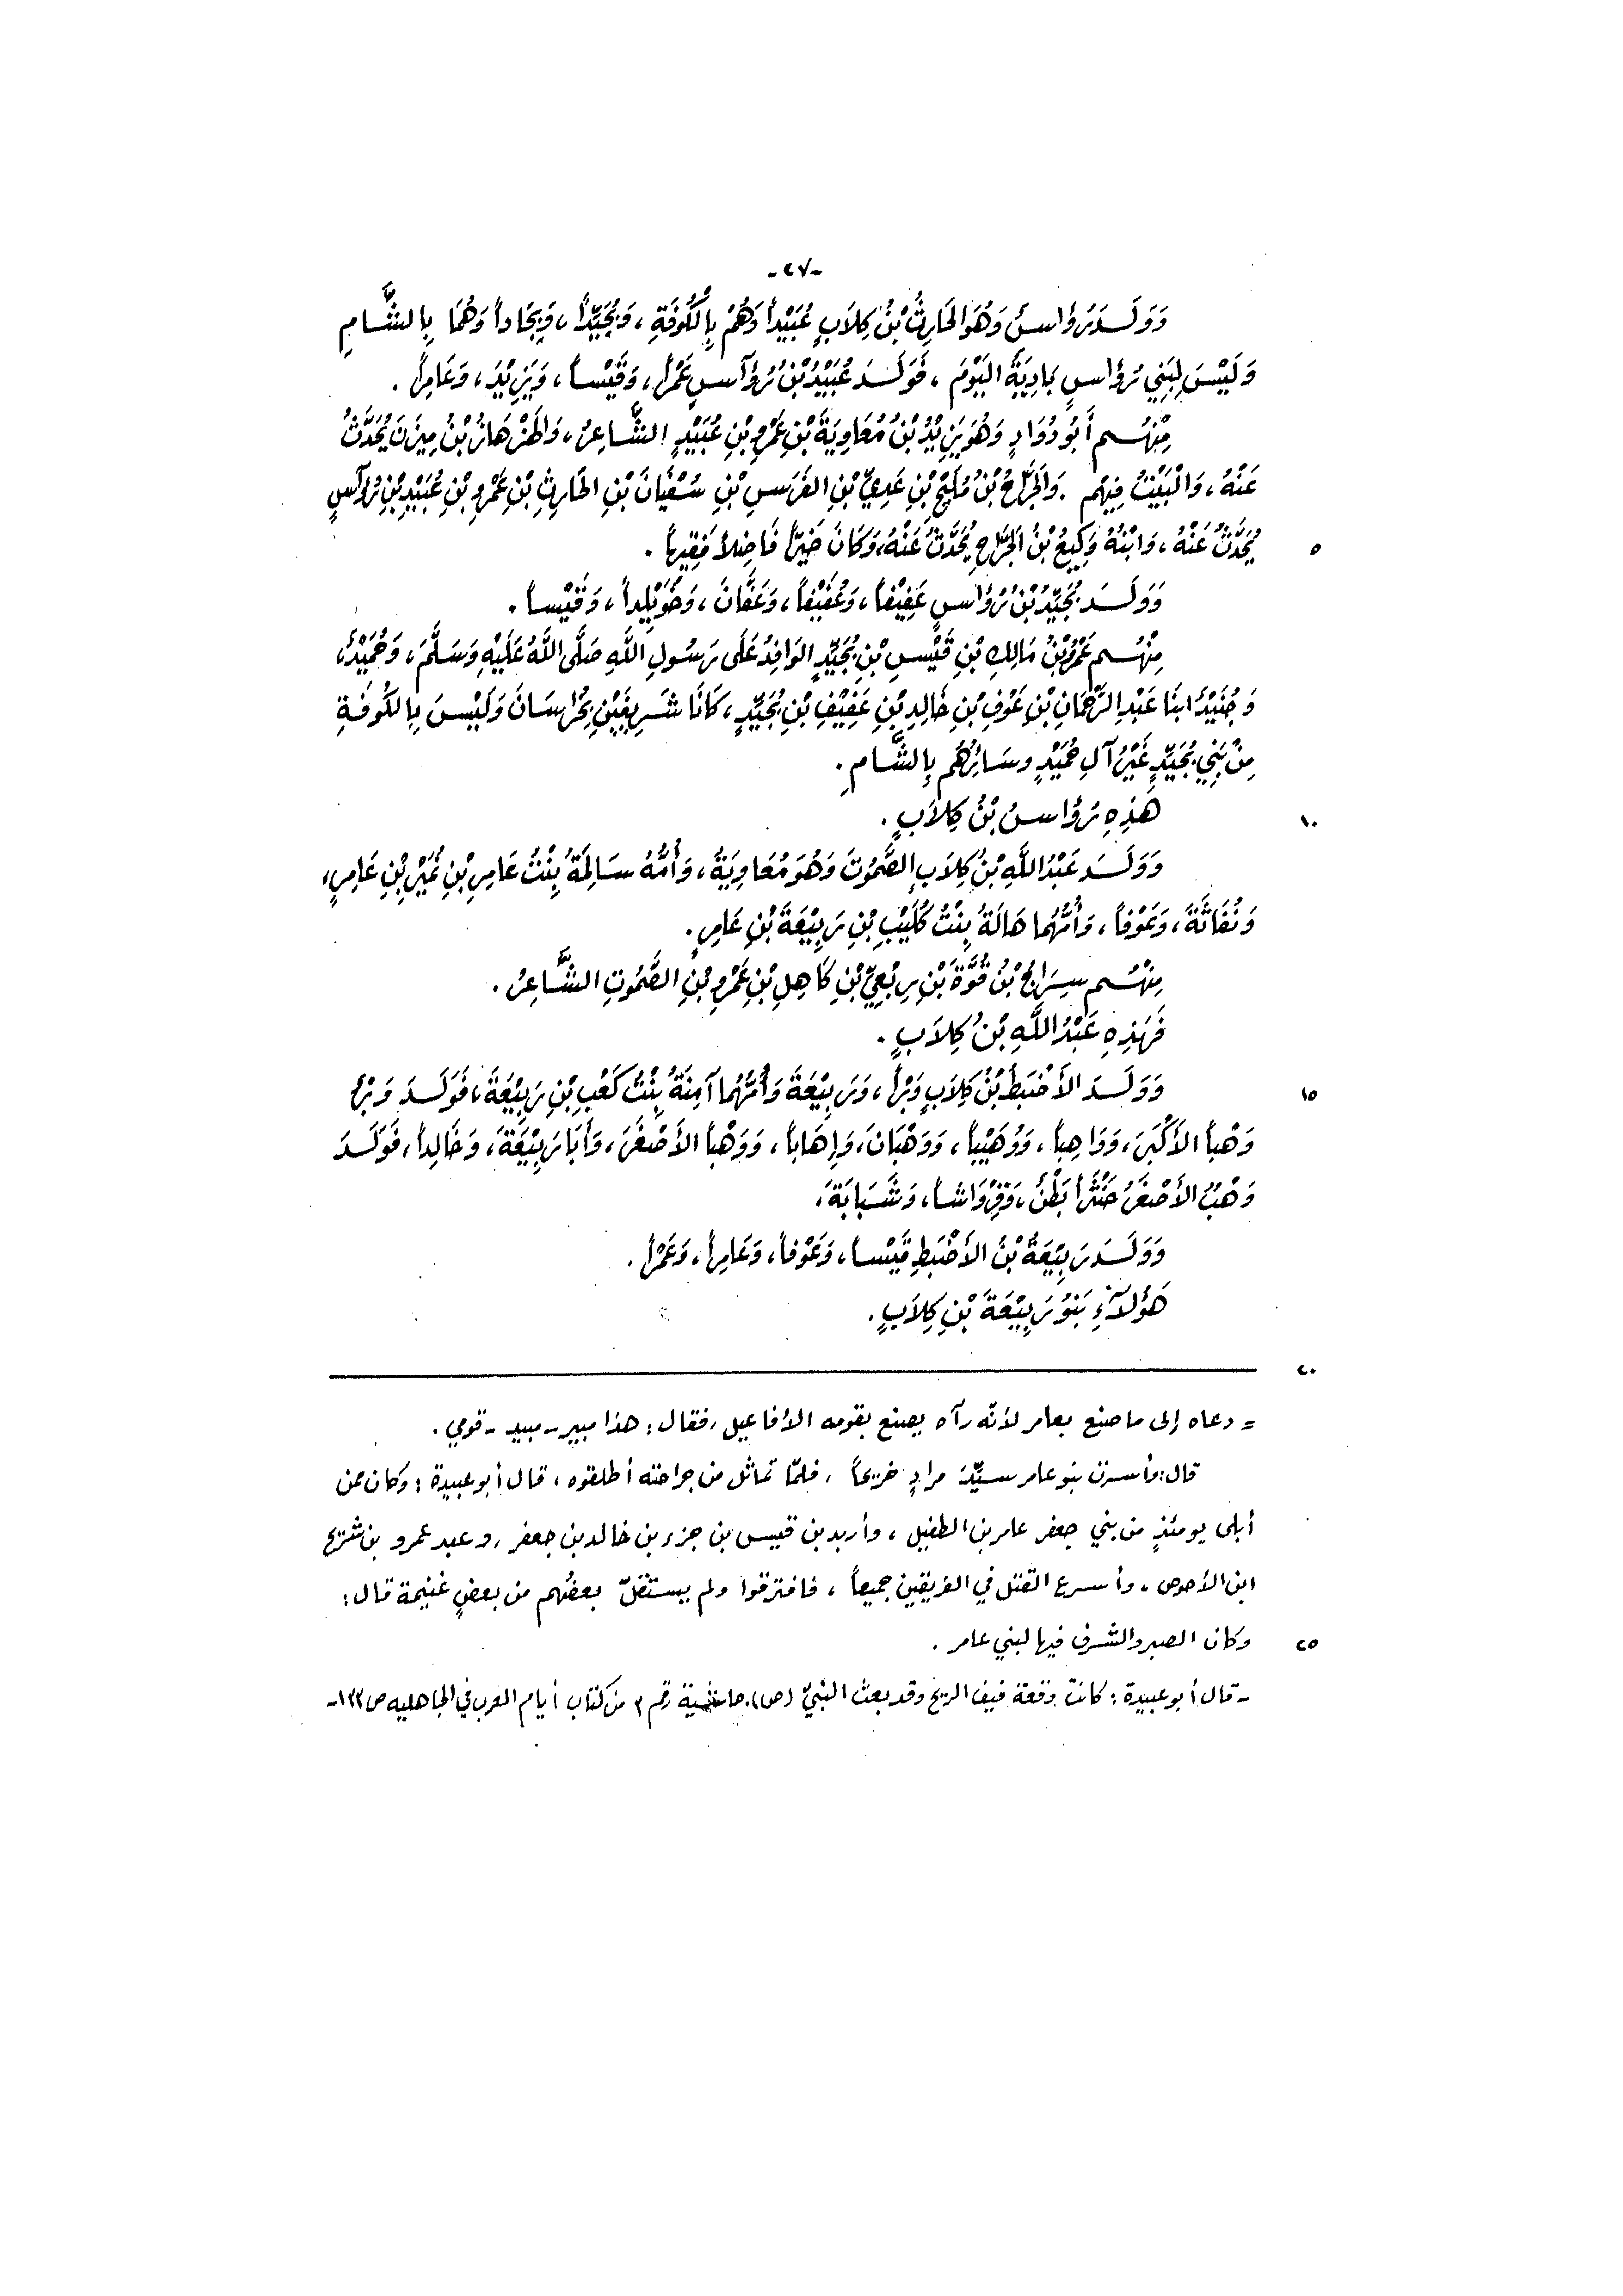 -٢٧-
وَوَلَدَ رُؤَاسٌ وَهُوَ الحَارِثُ بْنُ كِلاَبٍ عُبَيْداً وَهُمْ بِالْكُوفَةِ، وَبُجَيِّداً، وَبِجَاداً وَهُمَا بِالشَّامِ
وَلَيْسَ لِبَنِي رُؤَاسٍ بَادِيَةٌ اليَوْمَ، فَوَلَدَ عُبَيْدُ بْنُ رُؤَآسٍ عَمْراً، وَقَيْساً، وَيَزِيْدَ، وَعَامِراً.
مِنْهُم أَبُو دُوَادٍ وَهُوَ يَزِيْدُ بْنُ مُعَاوِيَةَ بْنِ عَمْرِو بْنِ عُبَيْدٍ الشَّاعِرُ، وَالهَزْهَازُ بْنُ مِيزَنَ يُحَدَّثُ
عَنْهُ، وَالْبَيْتُ فِيهِم. وَالجَرَّاحُ بْنُ مُلَيْحِ بْنِ عَدِيِّ بْنِ الفَرَسِ بْنِ سُفْيَانَ بْنِ الحَارِثِ بْنِ عَمْرِو بْنِ عُبَيْدِ بْنِ رُؤَآسٍ
٥ يُحَدَّثُ عَنْهُ، وَابْنُهُ وَكِيعُ بْنُ الجَرَّاحِ يُحَدَّثُ عَنْهُ، وَكَانَ خَيِّراً فَاضِلاً فَقِيهاً.
وَوَلَدَ بُجَيِّدُ بْنُ رُؤَاسٍ عَفِيْفاً، وَعُفَيْفاً، وَعَفَّانَ، وَخُوَيْلِداً، وَقَيْساً.
مِنْهُم عَمْرُو بْنُ مَالِكِ بْنِ قَيْسِ بْنِ بُجَيِّدٍ الوَافِدُ عَلَى رَسُولِ اللَّهِ صَلَّى اللَّهُ عَلَيْهِ وَسَلَّمَ، وَحُمَيْدٌ،
وَجُنَيْدٌ ابنَا عَبْدِ الرَّحْمَانِ بْنِ عَوْفِ بْنِ خَالِدِ بْنِ عَفِيْفِ بْنِ بُجَيِّدٍ، كَانَا شَرِيفَيْنِ بِخُرَاسَانَ وَلَيْسَ بِالكُوفَةِ
مِنْ بَنِي بُجَيِّدٍ غَيْرُ آلِ حُمَيْدٍ وسَائِرُهُم بِالشَّامِ.
١٠ هَذِهِ رُؤَاسُ بْنُ كِلاَبٍ.
وَوَلَدَ عَبْدُ اللَّهِ بْنُ كِلاَبٍ الصَّمُوتَ وَهُوَ مُعَاوِيَةُ، وَأُمُّهُ سَالِمَةُ بِنْتُ عَامِرِ بْنِ نُمَيْرِ بْنِ عَامِرٍ،
وَنُفَاثَةَ، وَعَوْفاً، وَأُمُّهُمَا هَالَةُ بِنْتُ كُلَيْبِ بْنِ رَبِيْعَةَ بْنِ عَامِرٍ.
مِنْهُم سِرَاجُ بْنُ قُوَّةَ بْنِ رِبْعِيِّ بْنِ كَاهِلِ بْنِ عَمْرِو بْنِ الصَّمُوتِ الشَّاعِرُ.
فَهَذِهِ عَبْدُ اللَّهِ بْنُ كِلاَبٍ.
١٥ وَوَلَدَ الأَضْبَطُ بْنُ كِلاَبٍ وَبْراً، وَرَبِيْعَةَ وَأُمُّهُمَا آمِنَةُ بِنْتُ كَعْبِ بْنِ رَبِيْعَةَ، فَوَلَدَ وَبْرٌ
وَهْباً الأَكْبَرَ، وَوَاهِباً، وَوُهَيْباً، وَوَهْبَانَ، وَإِهَاباً، وَوَهْباً الأَصْغَرَ، وَأَبَا رَبِيْعَةَ، وَخَالِداً، فَوَلَدَ
وَهْبُ الأَصْغَرُ حَنْثَراً بَطْنٌ، وَقِرْوَاشاً، وَشَبَابَةَ،
وَوَلَدَ رَبِيْعَةُ بْنُ الأَضْبَطِ قَيْساً، وَعَوْفاً، وَعَامِراً، وَعَمْراً.
هَؤُلاَءِ بَنُو رَبِيْعَةَ بْنِ كِلاَبٍ.
٢٠
= دعاه إلى ما صنع بعامر لأنّه رآه يصنع بقومه الأفاعيل، فقال: هذا مبير - مبيد - قومي.
قال: وأسرت بنو عامر سيِّدَ مرادٍ جريحاً، فلمّا تماثل من جراحته أطلقوه، قال أبو عبيدة: وكان ممن
أبلى يومئذٍ من بني جعفر عامر بن الطفيل، وأربد بن قيس بن جزء بن خالد بن جعفر، وعبد عمرو بن شريح
ابن الأحوص، وأسرع القتل في الفريقين جميعاً، فافترقوا ولم يستقلّ بعضُهم من بعضٍ غنيمة قال:
٢٥ وكان الصبر والشرف فيها لبني عامر.
- قال أبو عبيدة: كانت وقعة فيف الريح وقد بعث النبيّ (ص). حاشية رقم ٣ من كتاب أيام العرب في الجاهليه ص ١٣٣-